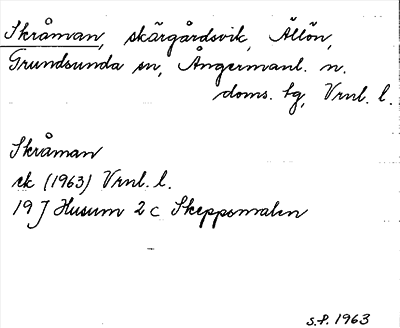 Skråman, skärgårdsvik, Ällön,
Grundsunda sn, Ångermanl. n.
doms. tg, Vrnl. l.
Skråman
ek (1963) Vrnl. l.
19 J Husum 2 c Skeppsmalen
s.f. 1963